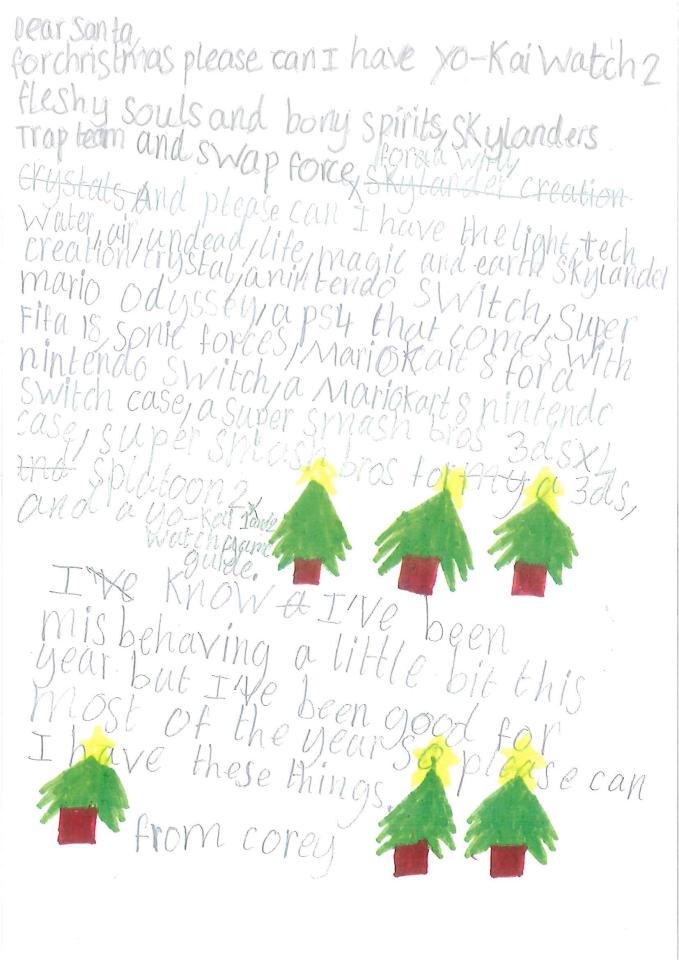 Dear Santa,
for christmas please can I have yo-Kai Watch 2
fleshy souls and bony spirits, Skylanders
Trap team and swap force, for a wii u,
Skylander creation
crystals And please can I have the light, tech
water, air, undead, life, magic and earth Skylander
creation crystal, a nintendo switch, Super
mario odyssey, a ps4 that comes with
Fifa 18, sonic forces, Mario Kart 8 for a
nintendo switch, a Mariokart 8 nintendo
switch case, a super smash bros 3dsxl
case, super smash bros for my a 3ds,
and splatoon 2,
and a yo-kai 1 and 2
watch game
guide.
I've know a I've been
misbehaving a little bit this
year but I've been good for
most of the year so please can
I have these things.
from corey